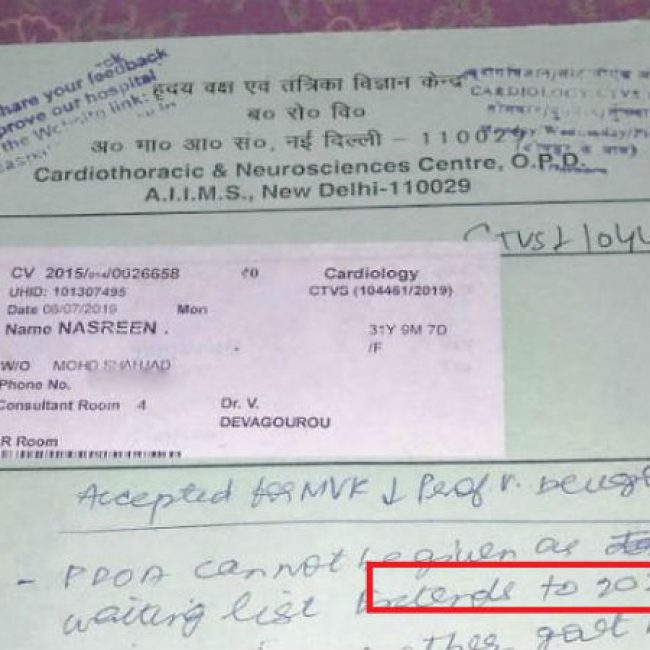 hare your feedback
prove our hospital
the Website link:
हृदय वक्ष एवं तंत्रिका विज्ञान केन्द्र
CARDIOLOGY CTVS
ब० रो० वि०
अ० भा० आ० सं०, नई दिल्ली – 110029
Cardiothoracic & Neurosciences Centre, O.P.D.
A.I.I.M.S., New Delhi-110029
CTVS
CV 2015/014/0026658 ₹0 Cardiology
UHID: 101307495 CTVS (104461/2019)
Date 08/07/2019 Mon
Name NASREEN . 31Y 9M 7D
/F
W/O MOHD SHAHJAD
Phone No.
Consultant Room 4 Dr. V.
DEVAGOUROU
R Room
Accepted for MVR Prof. V.
- PDOA cannot be given as
waiting list extends to 202